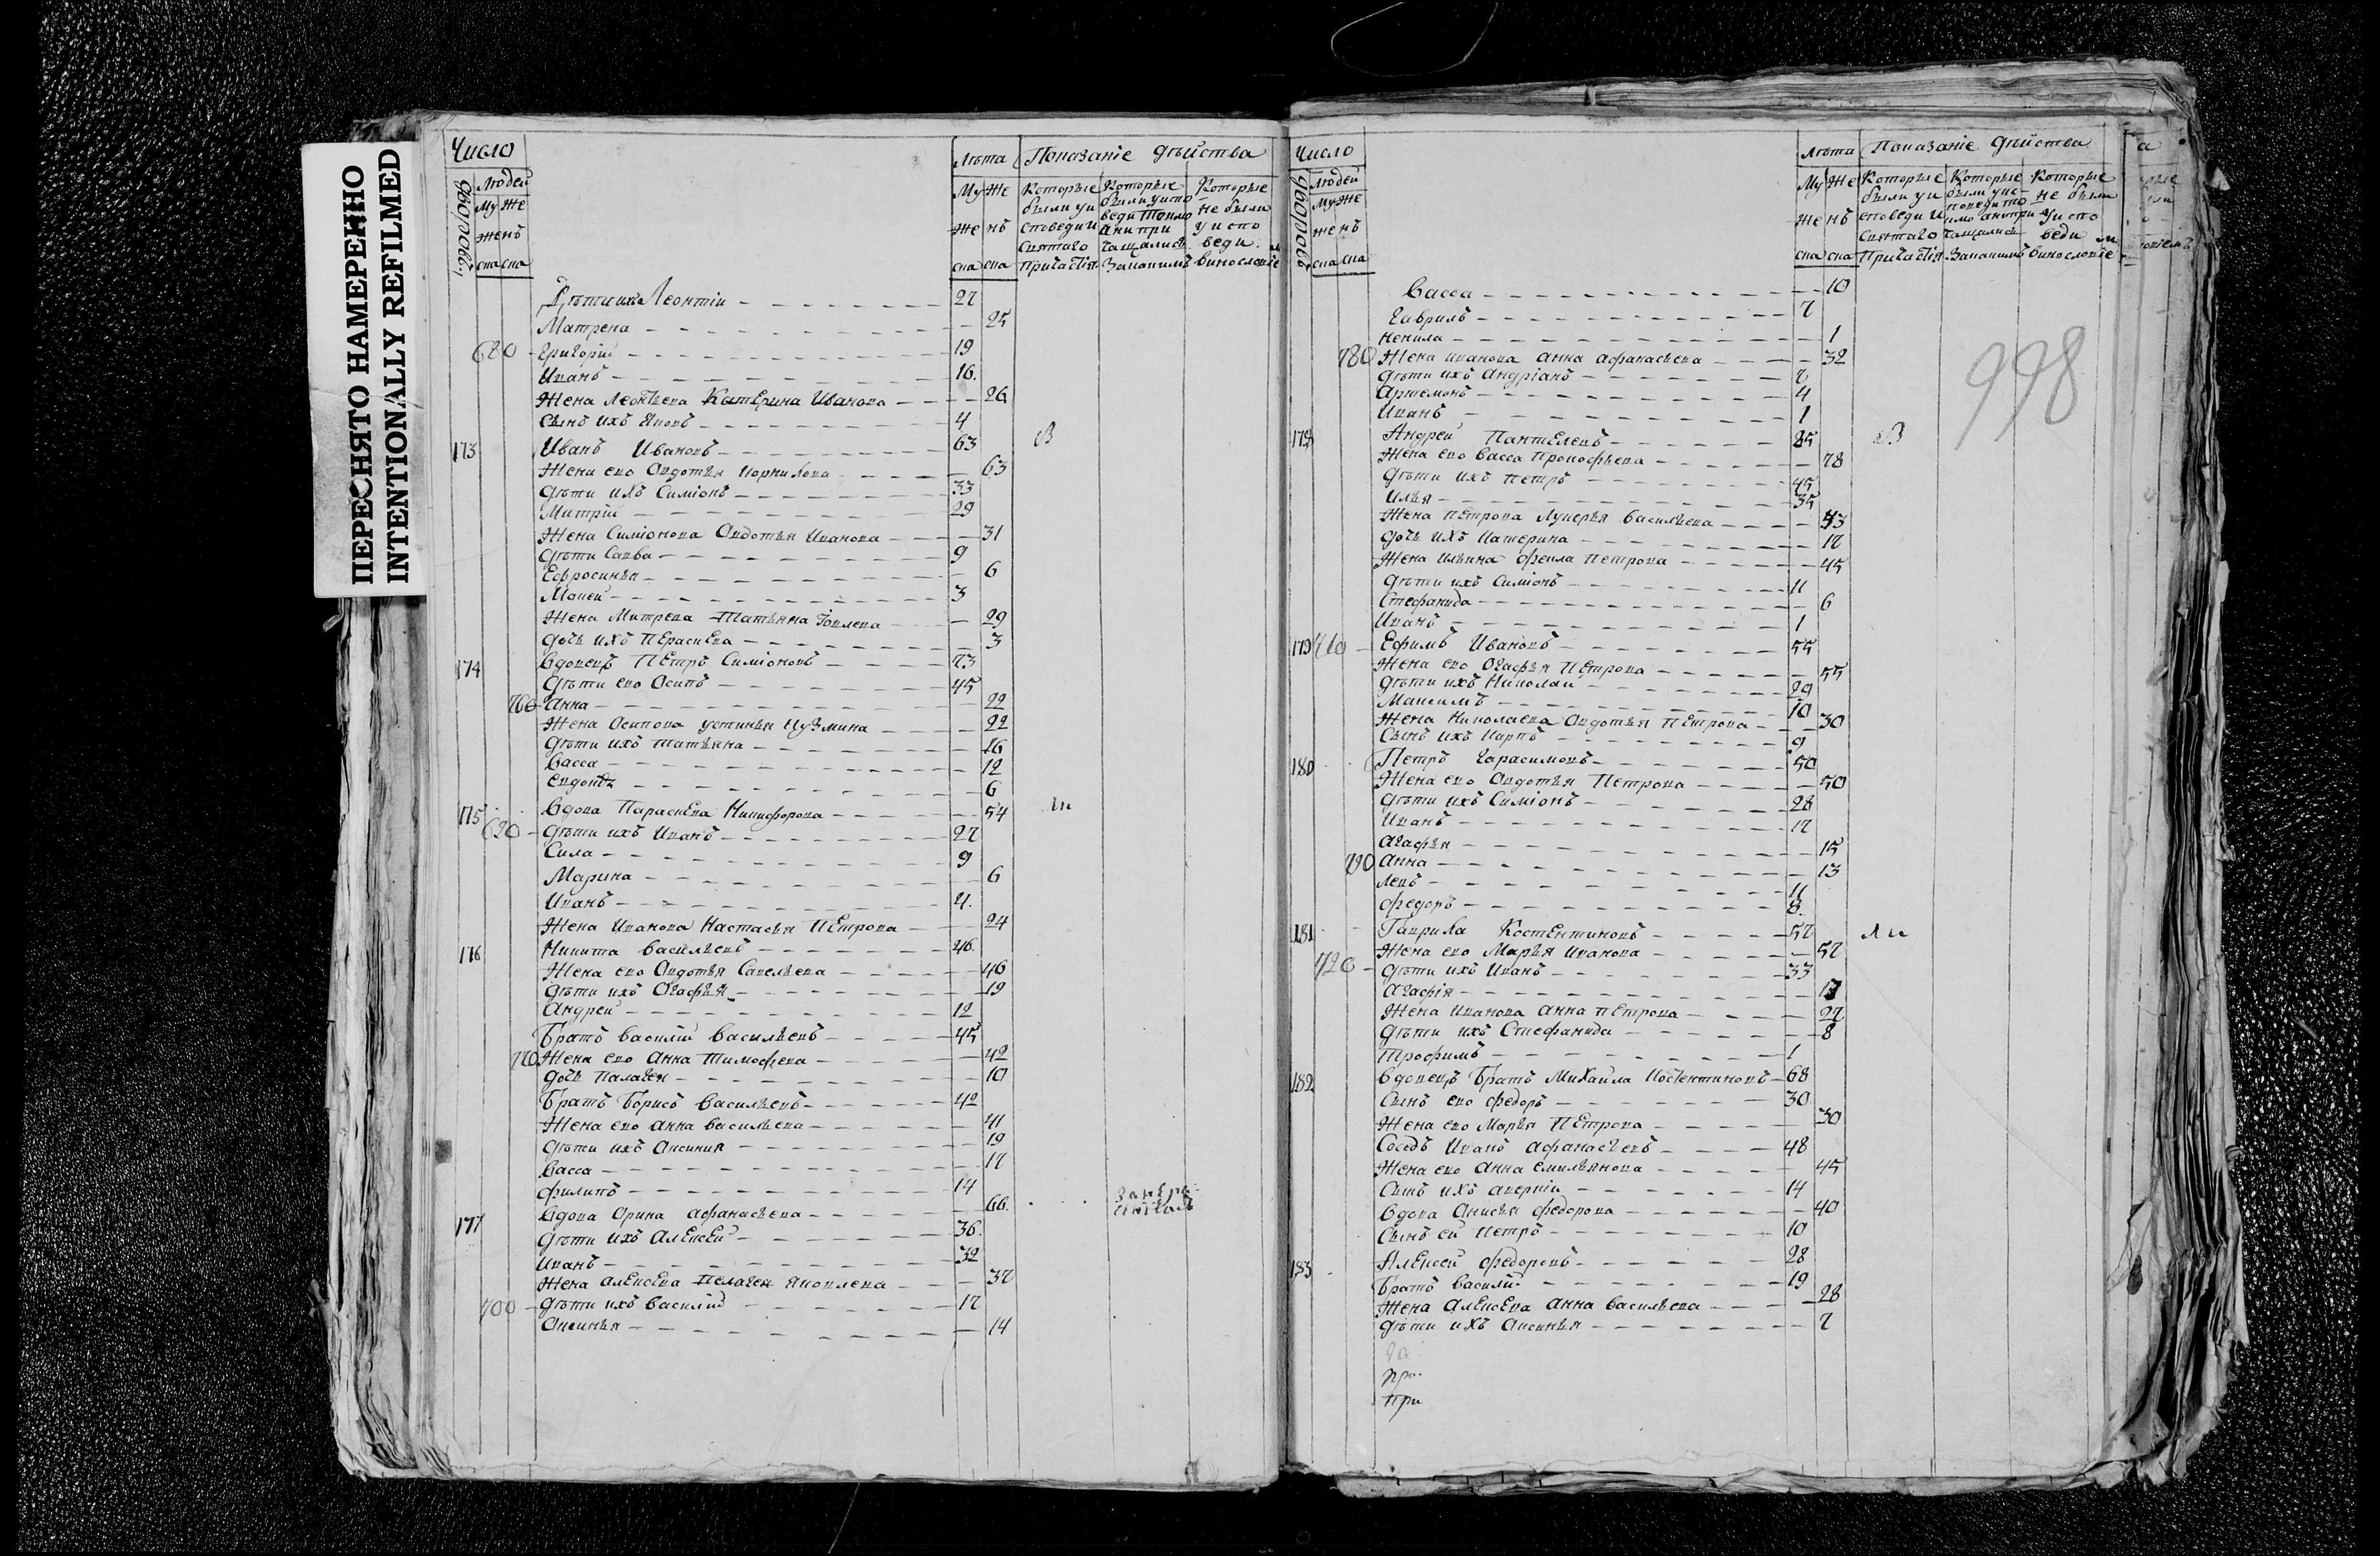 ПЕРЕСНЯТО НАМЕРЕННО
INTENTIONALLY REFILMED
Число
дворовъ
Людей
Му Же
женъ
ска ска
Лѣта
Му Же
же нъ
ска ска
Показаніе дѣйства
Которые были у исповеди и святаго причастія
Которые были у исповеди токмо а не причащались. За каким
Которые не были у исповеди. и винословіе
Дѣти ихъ Леонтіи 27
Матрена 25
680 Григории 19
Иванъ 16.
Жена Леонтьева Катерина Иванова 26
Сынъ ихъ Яковъ 4
173 Иванъ Ивановъ 63
Жена ево Овдотья Корнилова 63
Дѣти ихъ Симіонъ 33
Митрій 29
Жена Симіонова Овдотья Иванова 31
Дѣти Савва 9
Ефросинья 6
Мокей 3
Жена Митрева Татьяна Іовлева 29
Дочь ихъ Пераскева 3
174 Вдовецъ Петръ Симіоновъ 73
Дѣти ево Осипъ 45
Анна 22
Жена Осипова Устинья Кузмина 22
Дѣти ихъ Татьяна 16
Васса 12
6
175 Вдова Параскева Никифорова 54
690 Дѣти ихъ Иванъ 27
Сила 9
Марина 6
Иванъ 4.
Жена Иванова Настасья Петрова 24
176 Никита Васильевъ 46.
Жена ево Овдотья Савельева 46
Дѣти ихъ Огафья 19
Андрей 12
Братъ Василій Васильевъ 45
Жена ево Анна Тимофева 42
Дочь Палагея 10
Братъ Борисъ Васильевъ 42
Жена ево Анна Васильева 41
Дѣти ихъ Оксиния 19
Васса 17
Филипъ 14
Вдова Орина Афанасьева 66.
177 Дѣти ихъ Алексей 36.
Иванъ 32
Жена Алексева Пелагея Яковлева 37
700 Дѣти ихъ Василій 17
Оксинья 14
Число
дворовъ
Людей
Му Же
женъ
ска ска
Лѣта
Му Же
же нъ
ска ска
Показаніе дѣйства
Которые были у исповеди и святаго причастія
Которые были у исповеди токмо а не причащались За каким
Которые не были у исповеди и винословіе
998
Васса 10
Гаврилъ 7
Ненила 1
780 Жена Иванова Анна Афанасьева 32
Дѣти ихъ Андріанъ 7
Артемонъ 4
Иванъ 1
178 Андрей Пантелевъ 85
Жена ево Васса Прокофьева 78
Дѣти ихъ Петръ 45
Илья 35
Жена Петрова Лукерья Васильева 43
Дочь ихъ Катерина 17
Жена Ильина Фекла Петрова 45
Дѣти ихъ Симіонъ 11
Стефанида 6
Иванъ 1
179 710 Ефимъ Ивановъ 55
Жена ево Огафья Петрова 55
Дѣти ихъ Николай 29
Максимъ 10
Жена Николаева Овдотья Петрова 30
Сынъ ихъ Карпъ 9
180 Петръ Гарасимовъ 50
Жена ево Овдотья Петрова 50
Дѣти ихъ Симіонъ 28
Иванъ 17
Агафья 15
790 Анна 13
Левъ 11
Федоръ 8.
181 Гаврила Костентиновъ 57
Жена ево Марья Иванова 57
720 Дѣти ихъ Иванъ 33
Агафія 17
Жена Иванова Анна Петрова 27
Дѣти ихъ Стефанида 8
Трофимъ 1
182 Вдовецъ Братъ Михайла Костентиновъ 68
Сынъ ево Федоръ 30
Жена ево Марья Петрова 30
Соседъ Иванъ Афанасьевъ 48
Жена ево Анна Емильянова 45
Сынъ ихъ Аверкіи 14
Вдова Анисья Федорова 40
Сынъ ей Петръ 10
183 Алексей Федоровъ 28
Братъ Василій 19
Жена Алексева Анна Васильева 28
Дѣти ихъ Оксинья 7
При